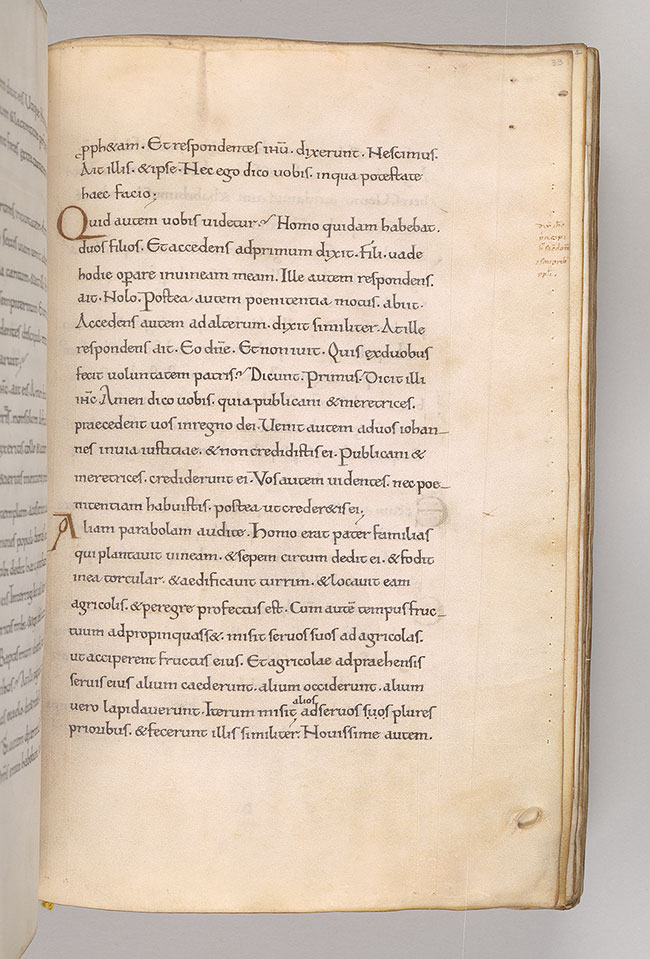 pph&am. Et respondentes ihū. dixerunt. Nescimus.
Ait illis. & ipse. Nec ego dico uobis. in qua potestate
haec facio;
Quid autem uobis uidetur? Homo quidam habebat.
duos filios. Et accedens ad primum dixit. Fili. uade
hodie operare in uineam meam. Ille autem respondens.
ait. Nolo. Postea autem poenitentia motus. abiit.
Accedens autem ad alterum. dixit similiter. At ille
respondens ait. Eo dn̄e. Et non iuit. Quis ex duobus
fecit uoluntatem patris? Dicunt. Primus. Dicit illi
ih̄c. Amen dico uobis. quia publicani & meretrices.
praecedent uos in regno dei. Uenit autem ad uos iohan-
nes in uia iustitiae. & non credidistis ei. Publicani &
meretrices. crediderunt ei. Vos autem uidentes. nec poe-
nitentiam habuistis. postea ut creder&is ei;
Aliam parabolam audite. Homo erat pater familias
qui plantauit uineam. & sepem circum dedit ei. & fodit
in ea torcular. & aedificauit turrim. & locauit eam
agricolis. & peregre profectus est. Cum autē tempus fruc-
tuum adpropinquass&. misit seruos suos ad agricolas.
ut acciperent fructus eius. Et agricolae adpraehensis
seruis eius alium caederunt. alium occiderunt. alium
uero lapidauerunt. Iterum misit alios ad seruos suos plures
prioribus. & fecerunt illis similiter. Nouissime autem.